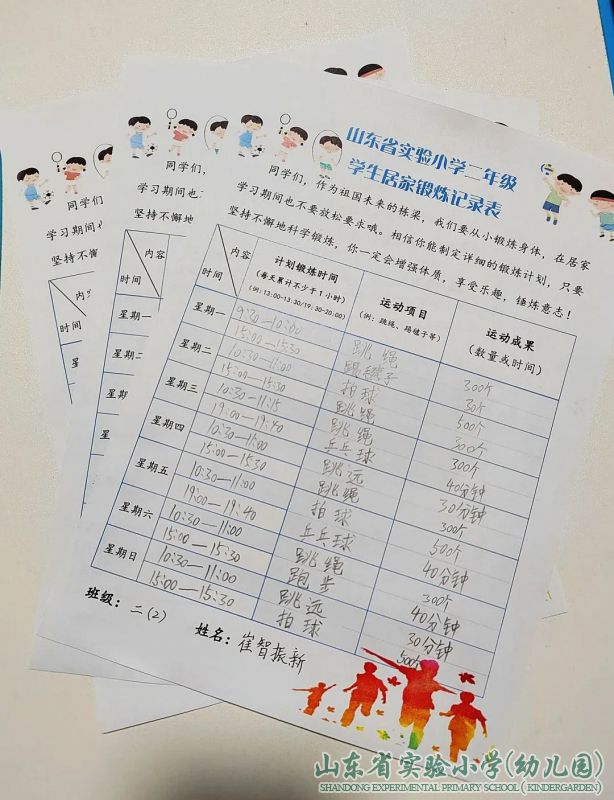 山东省实验小学二年级
学生居家锻炼记录表
同学们，作为祖国未来的栋梁，我们要从小锻炼身体，在居家
学习期间也不要放松要求哦。相信你能制定详细的锻炼计划，只要
坚持不懈地科学锻炼，你一定会增强体质，享受乐趣，锤炼意志！
内容 时间 计划锻炼时间 运动项目 运动成果
（每天累计不少于1小时） （例：跳绳、踢毽子等） （数量或时间）
（例：13:00-13:30/19:30-20:00）
星期一 9:30—10:00 跳绳 300个
15:00—15:30 踢毽子 30个
星期二 10:30—11:00 拍球 500个
15:00—15:30 跳绳 300个
星期三 10:30—11:15 跳绳 300个
19:00—19:40 乒乓球 40分钟
星期四 10:30—11:00 跳远 30分钟
15:00—15:30 跳绳 300个
星期五 10:30—11:00 拍球 500个
19:00—19:40 乒乓球 40分钟
星期六 10:30—11:00 跳绳 300个
15:00—15:30 跑步 40分钟
星期日 10:30—11:00 跳远 30分钟
15:00—15:30 拍球 500个
班级：二(2)
姓名：崔智振新
同学们，
学习期间也
坚持不懈地
内容
时间
星期一
星期二
星期
星期
星
同学们
学习期间也
坚持不懈
时间
山东省实验小学(幼儿园)
SHANDONG EXPERIMENTAL PRIMARY SCHOOL ( KINDERGARDEN)